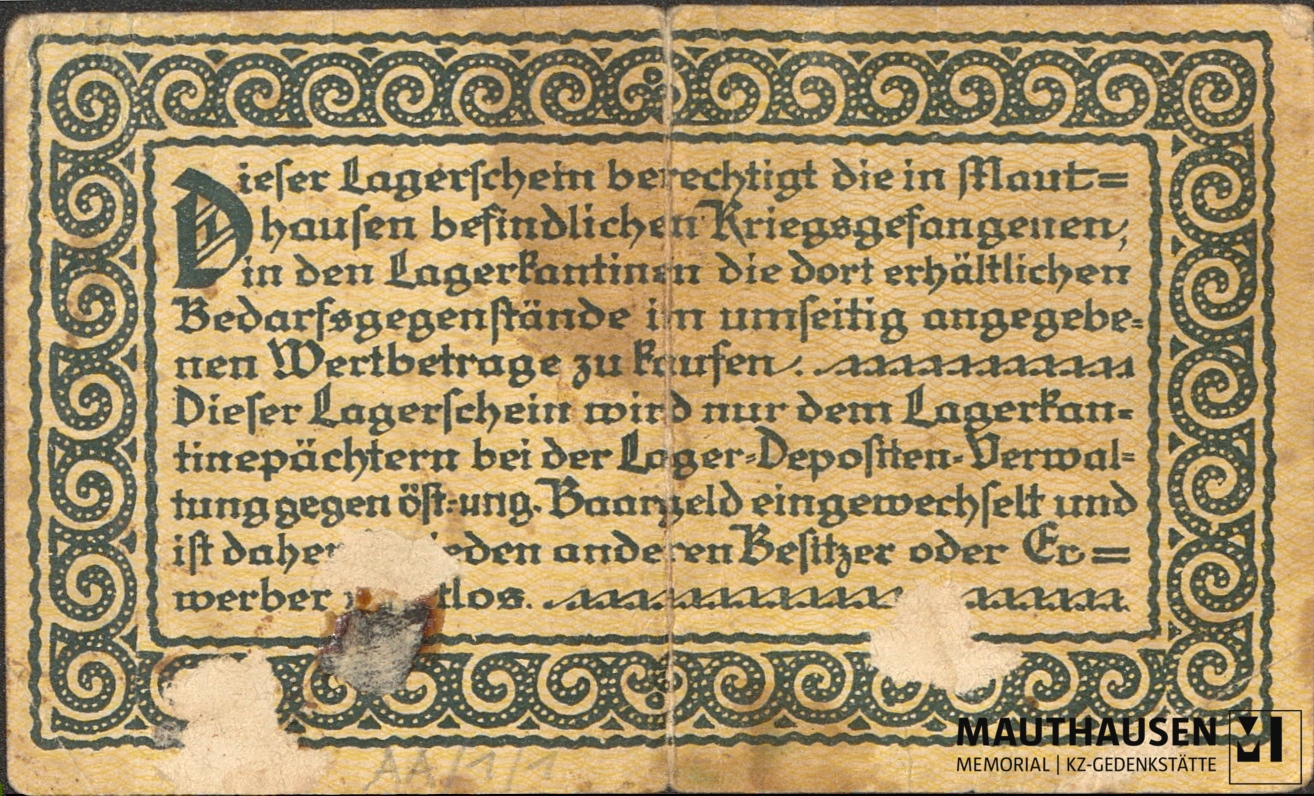 Dieser Lagerschein berechtigt die in Maut=
hausen befindlichen Kriegsgefangenen,
in den Lagerkantinen die dort erhältlichen
Bedarfsgegenstände im umseitig angegebe=
nen Wertbetrage zu kaufen.
Dieser Lagerschein wird nur dem Lagerkan=
tinepächtern bei der Lager=Depositen-Verwal=
tung gegen öst=ung. Baargeld eingewechselt und
ist daher anderen Besitzer oder Er=
werber
AA/1/1
MAUTHAUSEN
MEMORIAL | KZ-GEDENKSTÄTTE